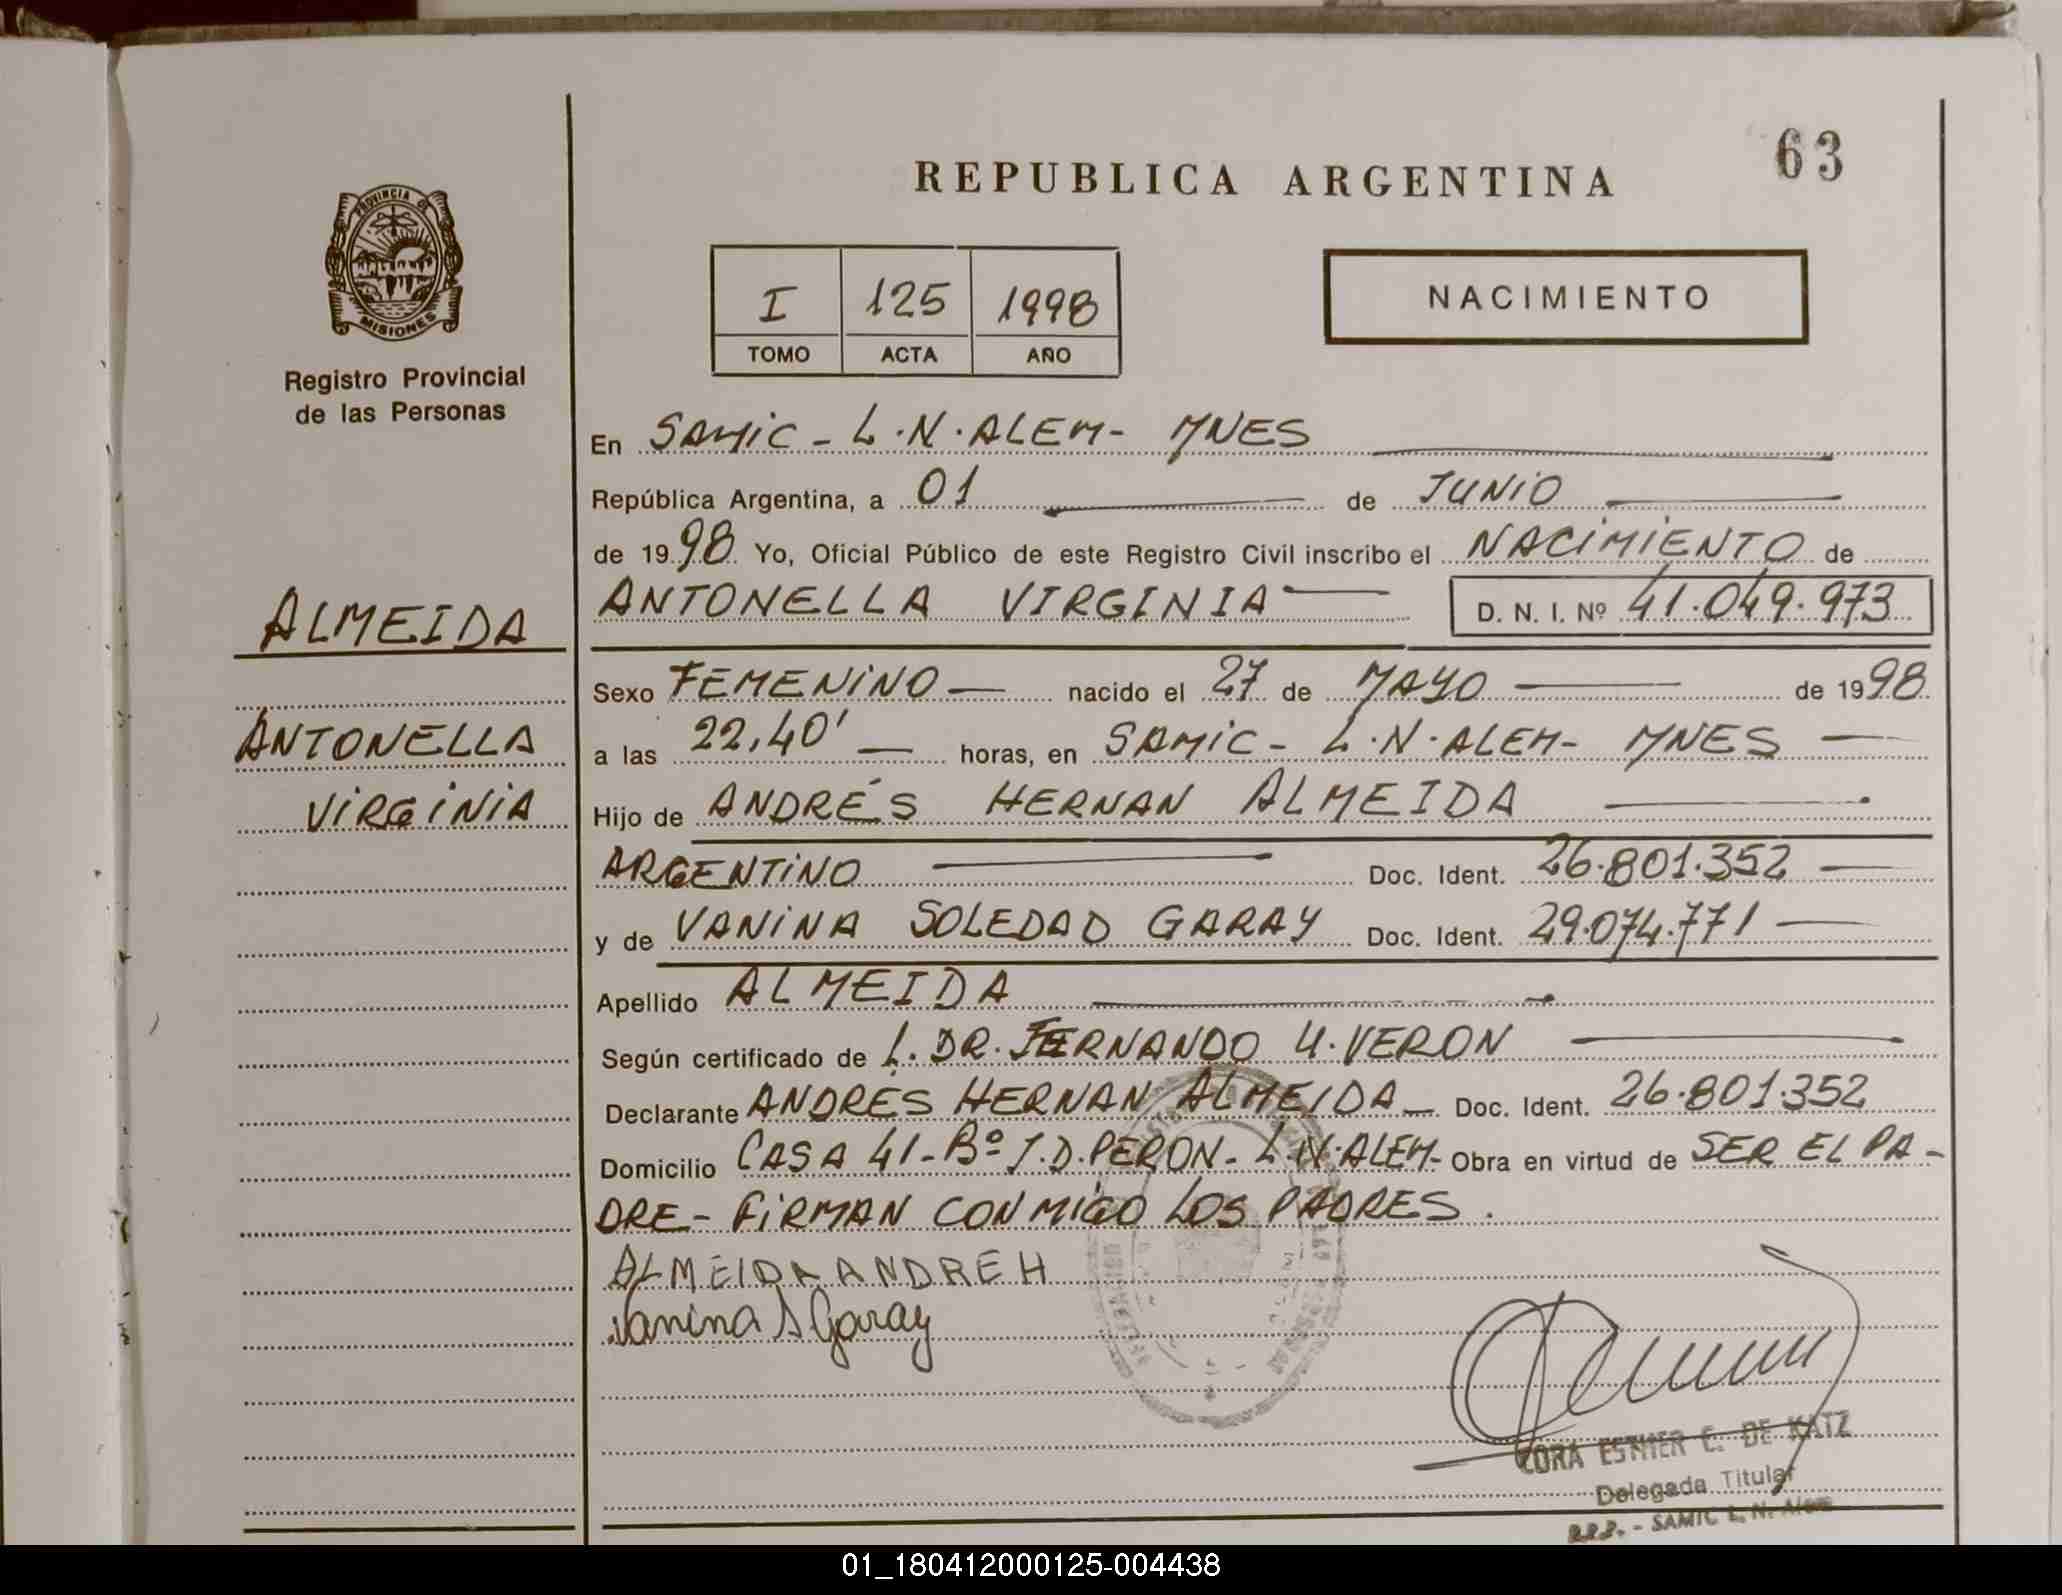 63
REPUBLICA ARGENTINA
PROVINCIA DE
MISIONES
Registro Provincial
de las Personas
I 125 1998
TOMO ACTA AÑO
NACIMIENTO
En SAMIC - L.N. ALEM - MNES
República Argentina, a 01 de JUNIO
de 1998 Yo, Oficial Público de este Registro Civil inscribo el NACIMIENTO de
ANTONELLA VIRGINIA D. N. I. Nº 41.049.973
ALMEIDA
ANTONELLA
VIRGINIA
Sexo FEMENINO nacido el 27 de MAYO de 1998
a las 22,40' horas, en SAMIC - L.N. ALEM - MNES
Hijo de ANDRÉS HERNAN ALMEIDA
ARGENTINO Doc. Ident. 26.801.352
y de VANINA SOLEDAD GARAY Doc. Ident. 29.074.771
Apellido ALMEIDA
Según certificado de L. DR. FERNANDO U. VERON
Declarante ANDRÉS HERNAN ALMEIDA Doc. Ident. 26.801.352
Domicilio CASA 41 - Bº J.D. PERON - L.N. ALEM - Obra en virtud de SER EL PA-
DRE - FIRMAN CONMIGO LOS PADRES.
ALMEIDA ANDRE H
Vanina S Garay
ESTHER C. DE KATZ
Delegada Titular
R.P.P. - SAMIC L. N. Alem
01_180412000125-004438